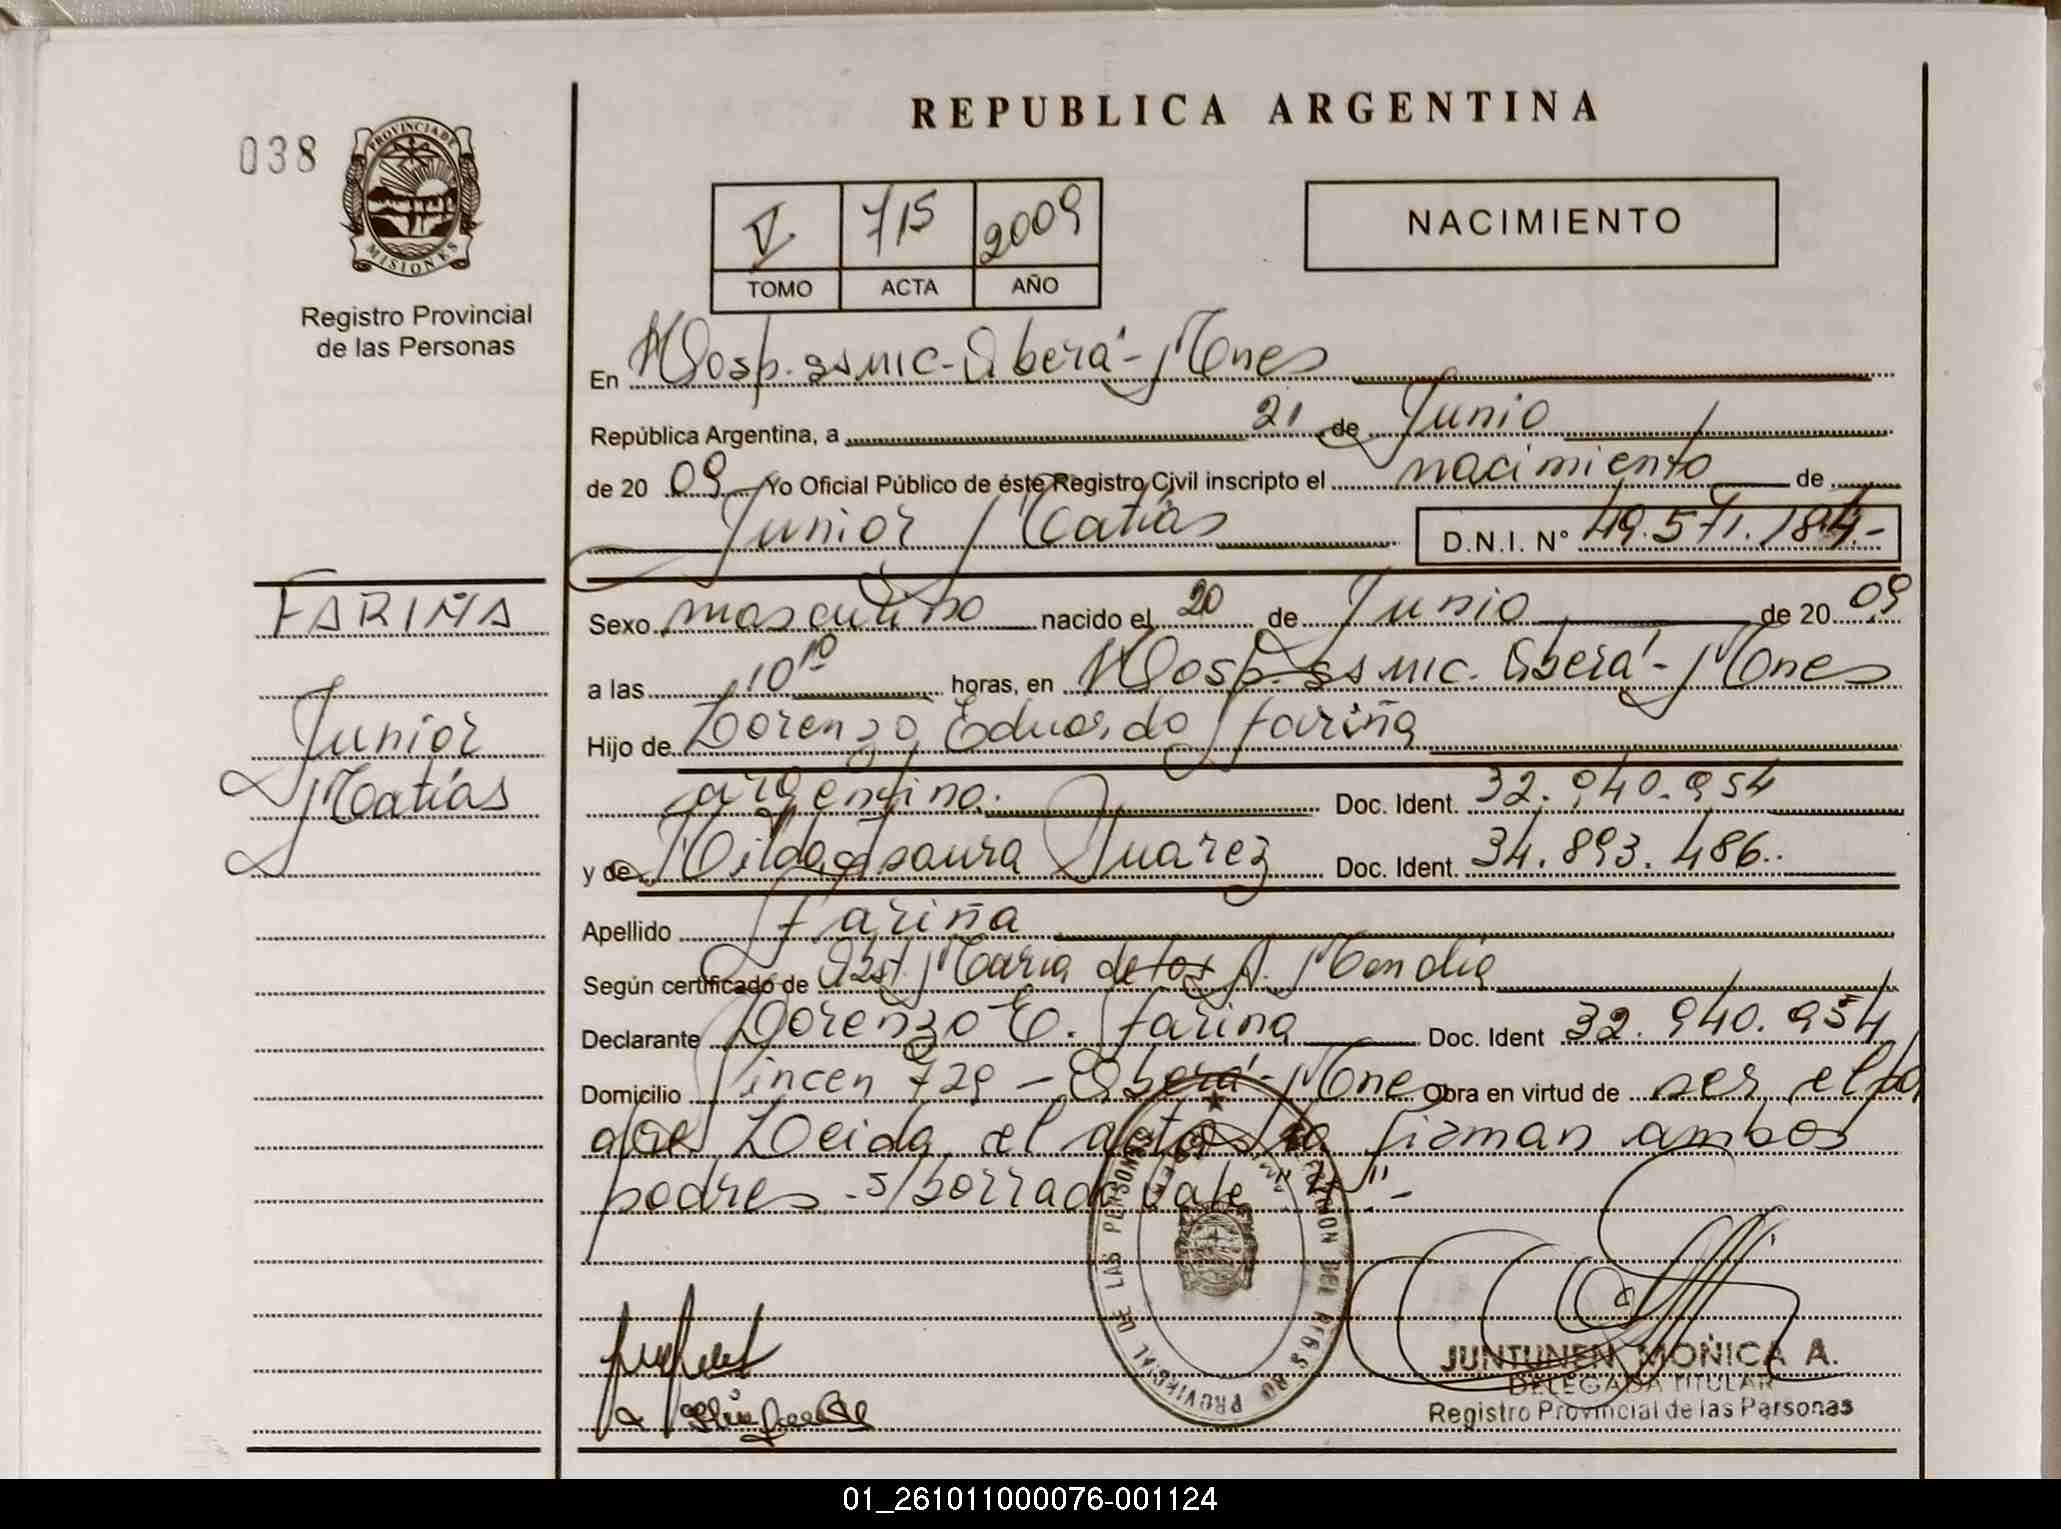 REPUBLICA ARGENTINA
038
PROVINCIA DE
MISIONES
Registro Provincial
de las Personas
V. 715 2009
TOMO ACTA AÑO
NACIMIENTO
En Hosp. ssmic - Oberá - Mnes
República Argentina, a 21 de Junio
de 20 09 Yo Oficial Público de éste Registro Civil inscripto el nacimiento de
Junior Matías D.N.I. Nº 49.571.184.-
FARIÑA
Junior
Matías
Sexo masculino nacido el 20 de Junio de 20 09
a las 10 10 horas, en Hosp. ssmic. Oberá - Mnes
Hijo de Lorenzo Eduardo Fariña
argentino. Doc. Ident. 32.940.954
y de Hilda Isaura Juarez Doc. Ident. 34.893.486.
Apellido Fariña
Según certificado de Obst. Maria de los A.
Declarante Lorenzo E. Fariña Doc. Ident 32.940.954
Domicilio 729 - Oberá - Mnes Obra en virtud de ser el pa
dre Leida el acta la firman ambos
padres - s/borrado vale "4" -
PROVINCIAL DE LAS PERSONAS
JUNTUNEN MONICA A.
DELEGADA TITULAR
Registro Provincial de las Personas
01_261011000076-001124